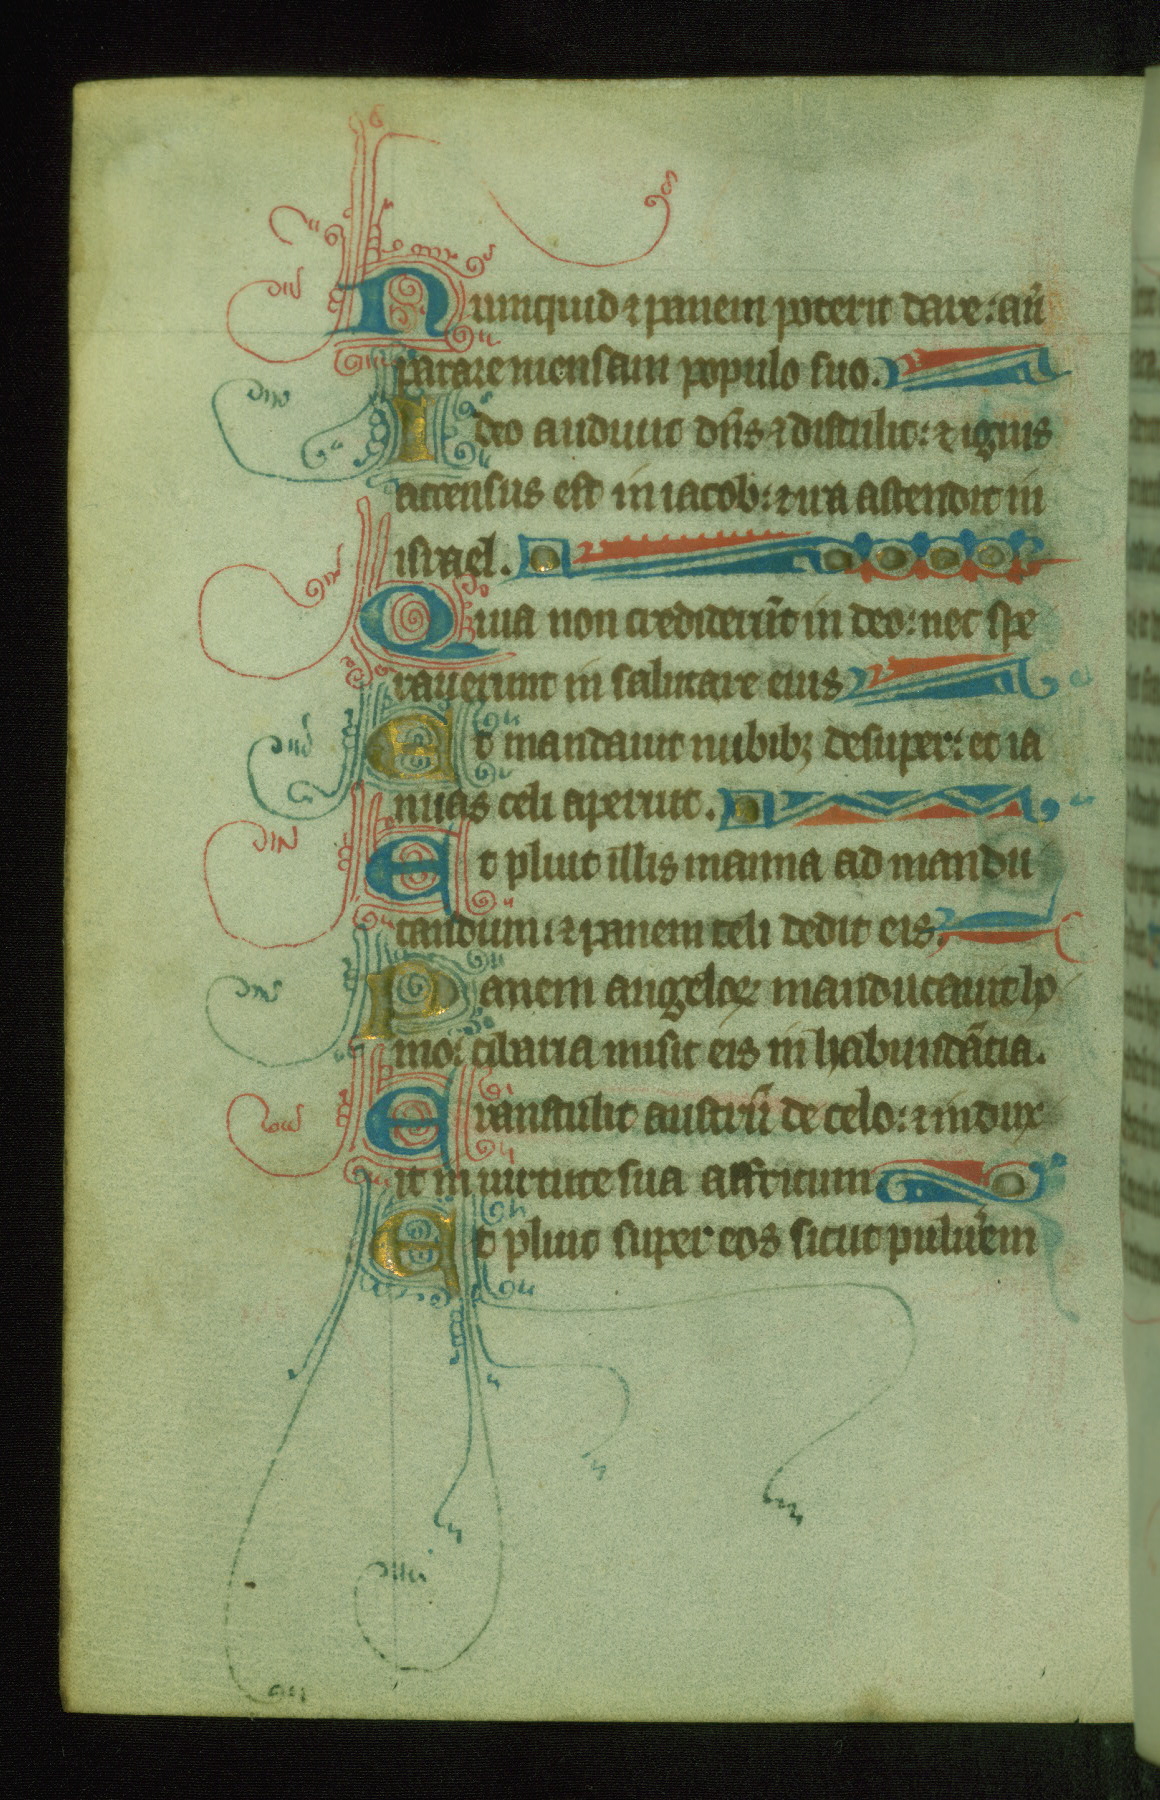 Numquid ⁊ panem poterit dare: aut̄
parare mensam populo suo.
Ideo audiuit dn̄s ⁊ distulit: ⁊ ignis
accensus est in iacob: ⁊ ira ascendit in
israel.
Quia non crediderūt in deo: nec spe
rauerunt in salutare eius
Et mandauit nubibꝫ desuper: et ia
nuas celi aperuit.
Et pluit illis manna ad mandu
candum: ⁊ panem celi dedit eis.
Panem angeloꝝ manducauit ho
mo: cibaria misit eis in habundācia.
Transtulit austrū de celo: ⁊ indux
it in uirtute sua affricum
Et pluit super eos sicut puluerem